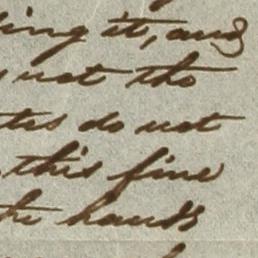 ing it, and
not the
tes do not
this fine
the hands